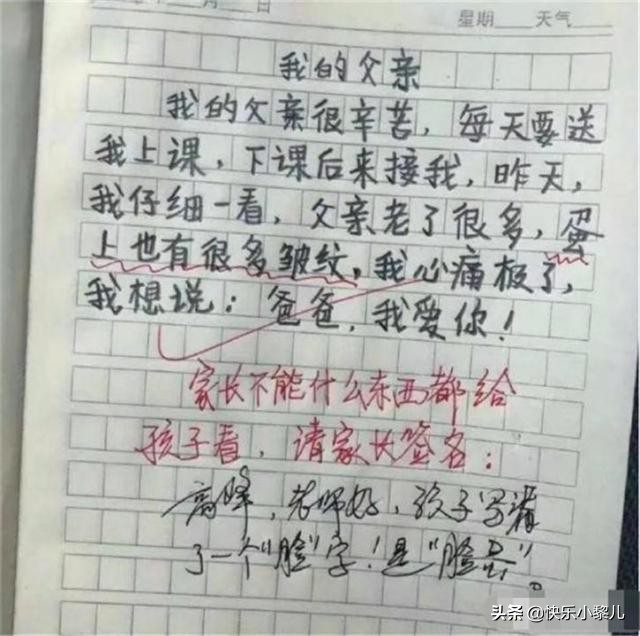 月 日
星期 天气
我的父亲
我的父亲很辛苦，每天要送
我上课，下课后来接我，昨天，
我仔细一看，父亲老了很多，蛋
上也有很多皱纹，我心痛极了，
我想说：爸爸，我爱你！
家长不能什么东西都给
孩子看，请家长签名：
高峰，老师好，孩子写漏
了一个"脸"字！是"脸蛋"。
头条 @快乐小黎儿